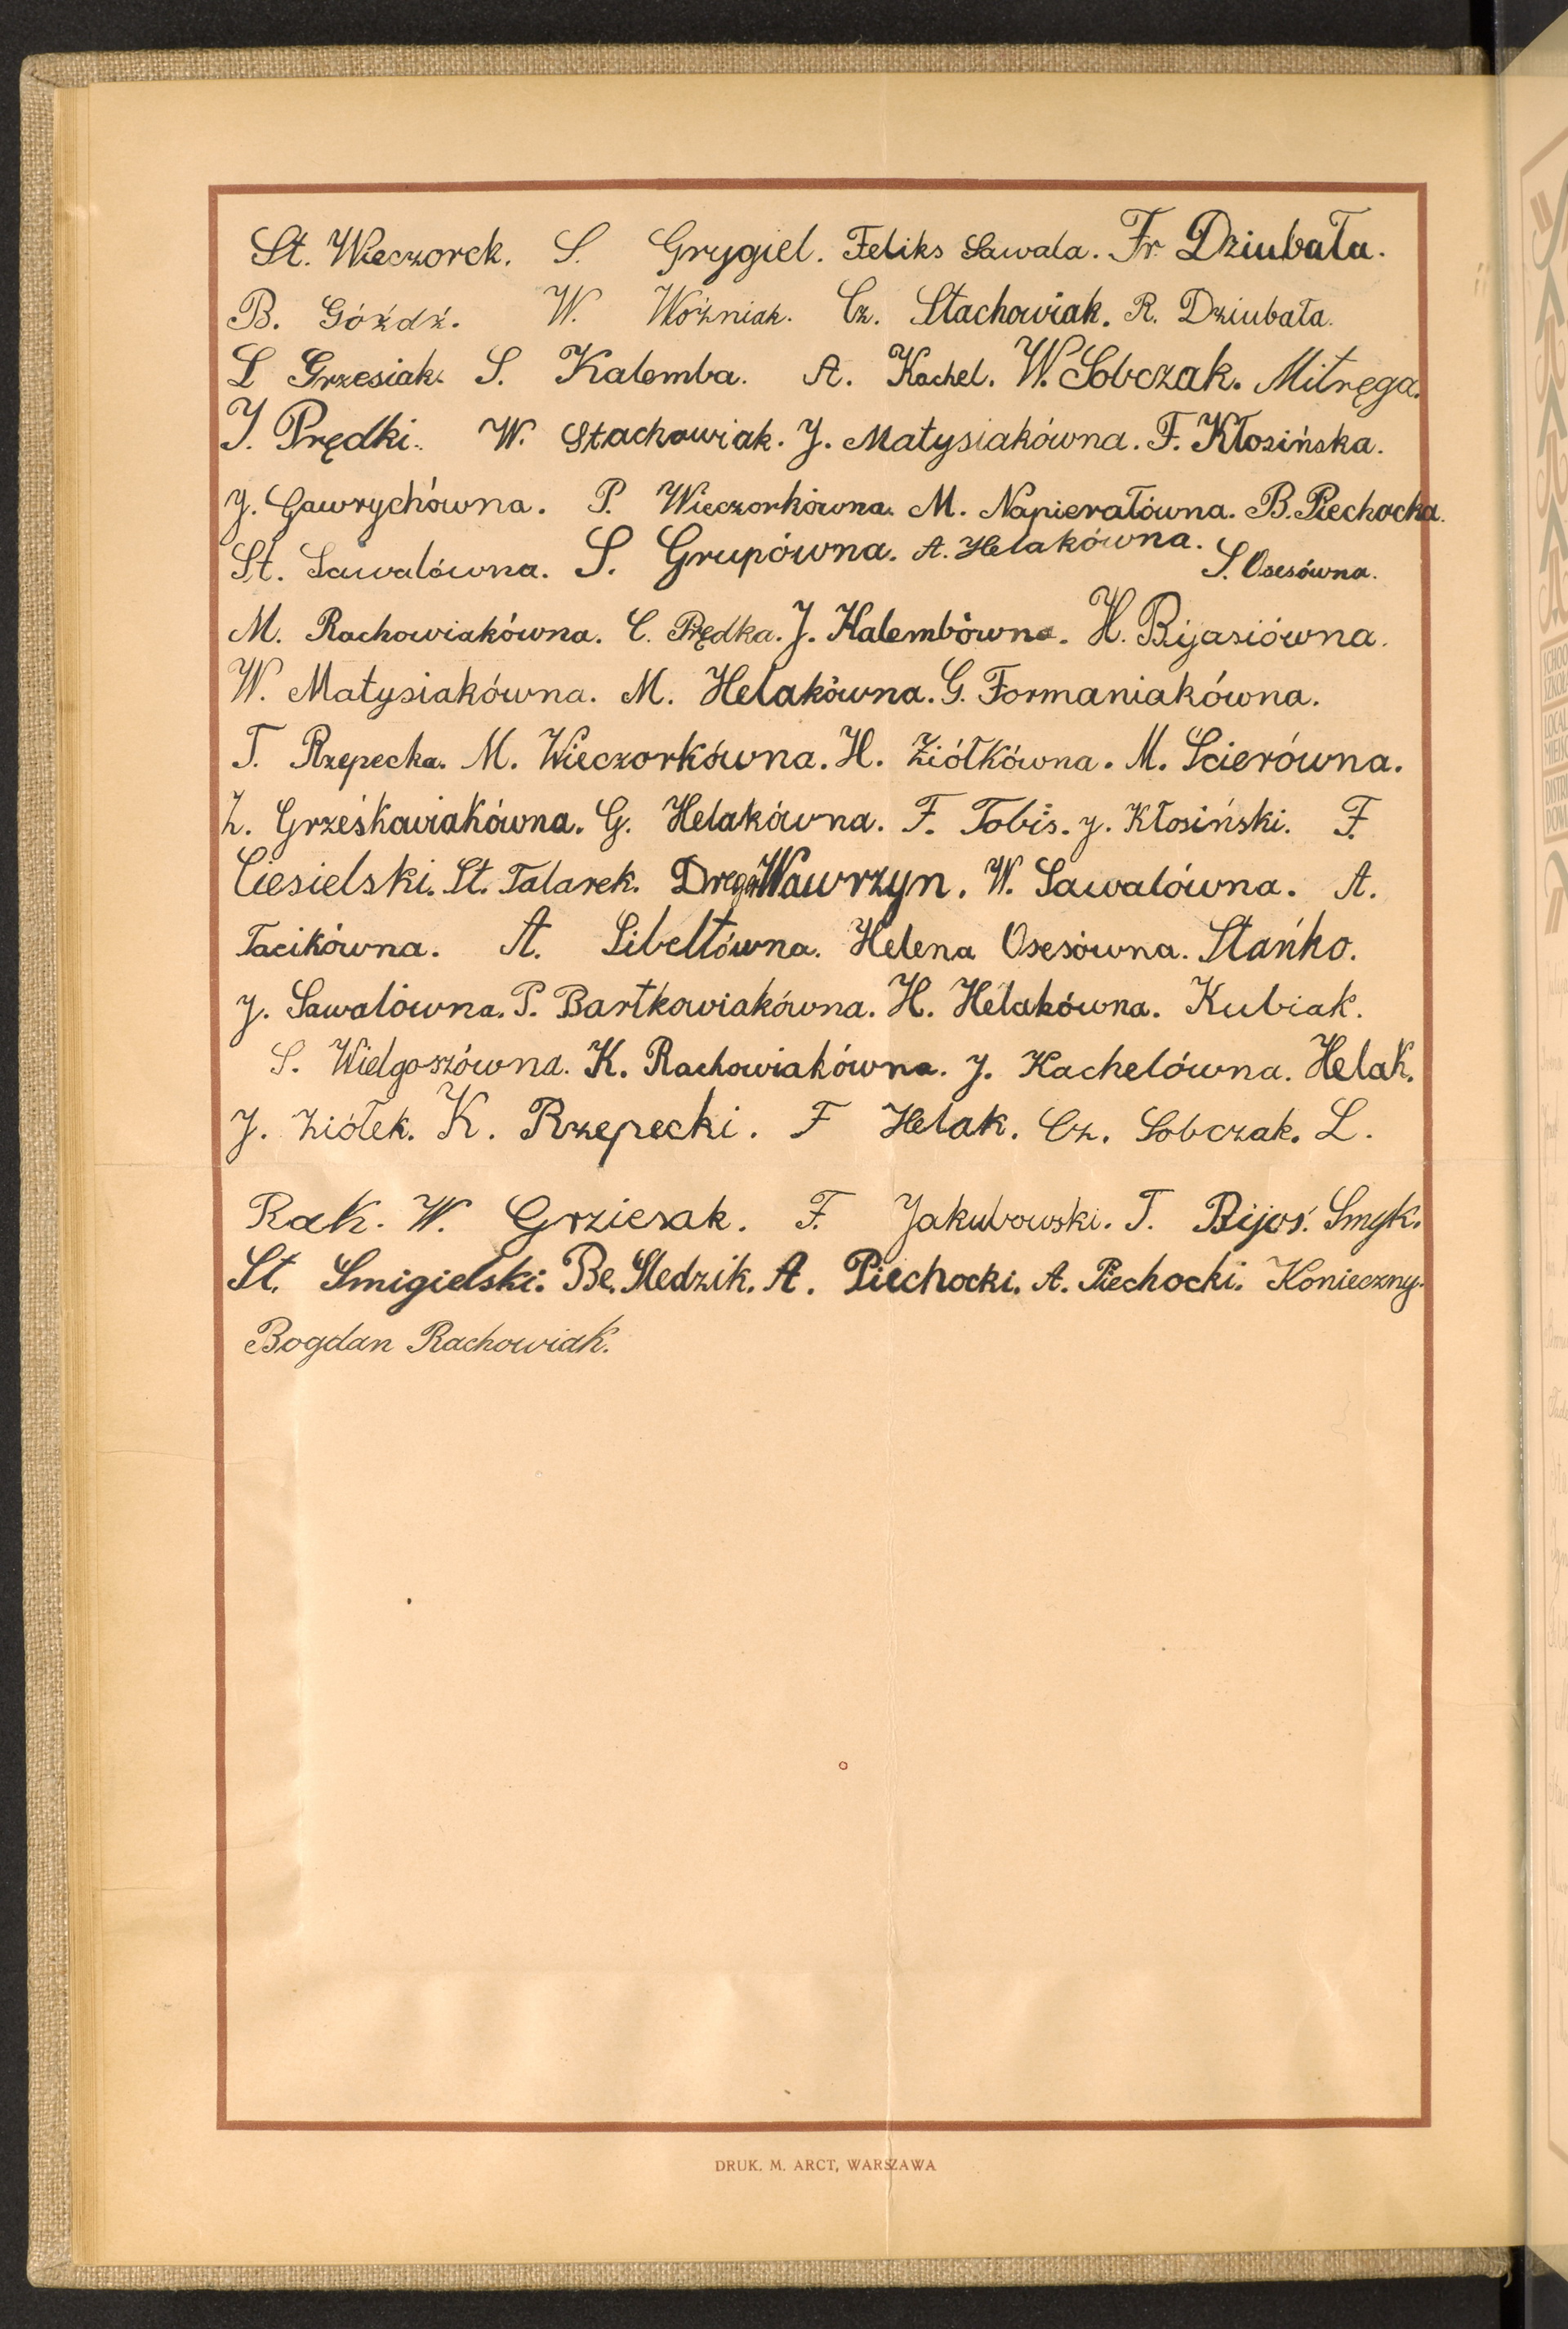 St. Wieczorek. S. Grygiel. Feliks Sawala. Fr. Dziubała.
B. Góźdź. W. Woźniak. Cz. Stachowiak. R. Dziubała.
L Grzesiak. S. Kalemba. A. Kachel. W. Sobczak. Mitręga.
J. Prędki. W. Stachowiak. J. Matysiakówna. F. Kłosińska.
J. Gawrychówna. P. Wieczorkówna. M. Napierałówna. B. Piechocka.
St. Sawalówna. S. Grupówna. A. Helakówna. S. Osesówna.
M. Rachowiakówna. C. Prędka. J. Kalembówna. H. Bijasiówna.
W. Matysiakówna. M. Helakówna. G. Formaniakówna.
T. Rzepecka. M. Wieczorkówna. H. Ziółkówna. M. Scierówna.
Z. Grześkowiakówna. G. Helakówna. F. Tobis. J. Kłosiński. F.
Ciesielski. St. Talarek. Wawrzyn. W. Sawalówna. A.
Tacikówna. A. Libeltówna. Helena Osesówna. Stańko.
J. Sawalówna. P. Bartkowiakówna. H. Helakówna. Kubiak.
S. Wielgoszówna. K. Rachowiakówna. J. Kachelówna. Helak.
J. Ziółek. K. Rzepecki. F Helak. Cz. Sobczak. L.
Rak. W. Grziesak. F. Jakubowski. T. Bijoś. Smyk.
St. Smigielski. Be. Sledzik. A. Piechocki. A. Piechocki. Konieczny.
Bogdan Rachowiak.
DRUK. M. ARCT, WARSZAWA